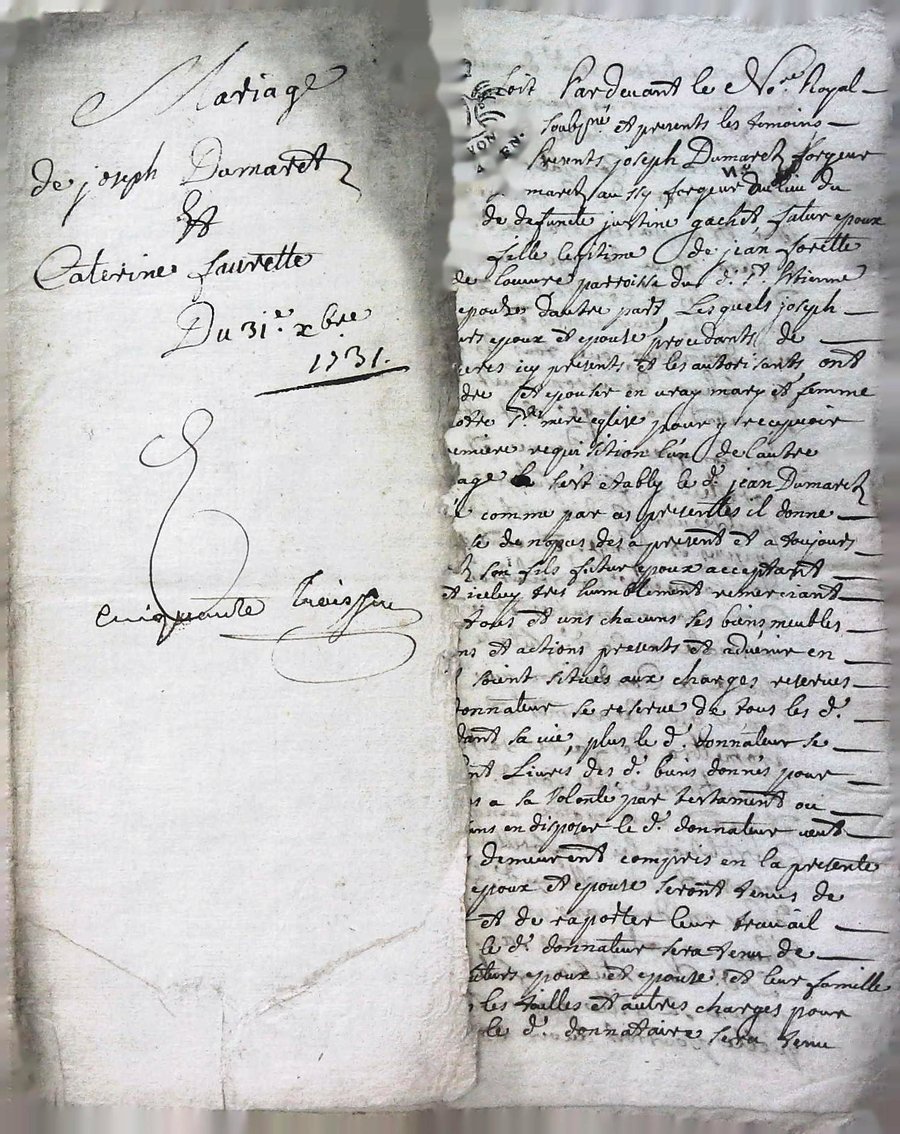 Mariage
de joseph Dumaretz
Et
Caterine faurette
Du 31e. xbre
1731.
Cinquante
soit Pardevant le Nore. Royal
soubsné. et presents les temoins
Presents joseph Dumaretz forgeur
maretz aussy forgeur du lieu du
de defuncte justine gachet, futur epoux
fille legitime de jean forette
de Louvre parroisse du d. St. Etienne
epouze d'autre part Lesquels joseph
urs epoux et epouse, procedants de
eres icy présents et les autorisants ont
dre et epouser en vray mary et femme
otre Ste. mere eglise pour y recepvoir
emiere requisition l'un de l'autre
age s'est etably le d. jean Dumaretz
comme par ces presentes il donne
se de nopces des a present et a toujours
tz son fils futur epoux acceptant
et iceluy tres humblement remerciant
tous et uns chacuns ses biens meubles
ns et actions presents et advenir en
soient situés aux charges reserves
onnateur se reserve de tous les d.
dant sa vie, plus le d. donnateur se
nt Livres des d. biens donnés pour
s a sa volonté par testament ou
ns en disposer le d. donnateur veut
demeurent compris en la presente
epoux et epouse seront tenus de
et de raporter leur travail
le d. donnateur sera tenu de
uturs epoux et epouse, et leur famille
les tailles et autres charges pour
le d. donnataire sera tenu